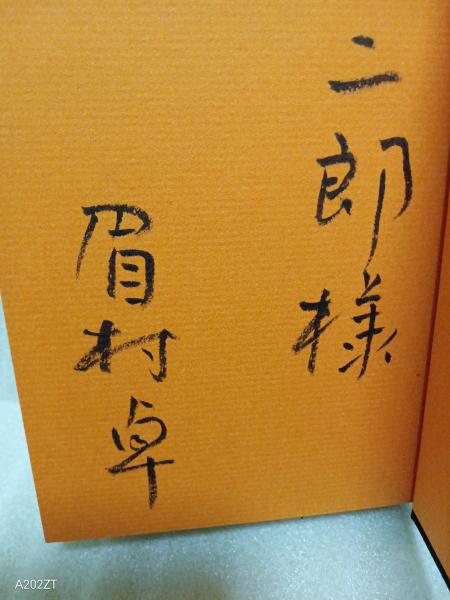 二郎様
眉村卓
A202ZT